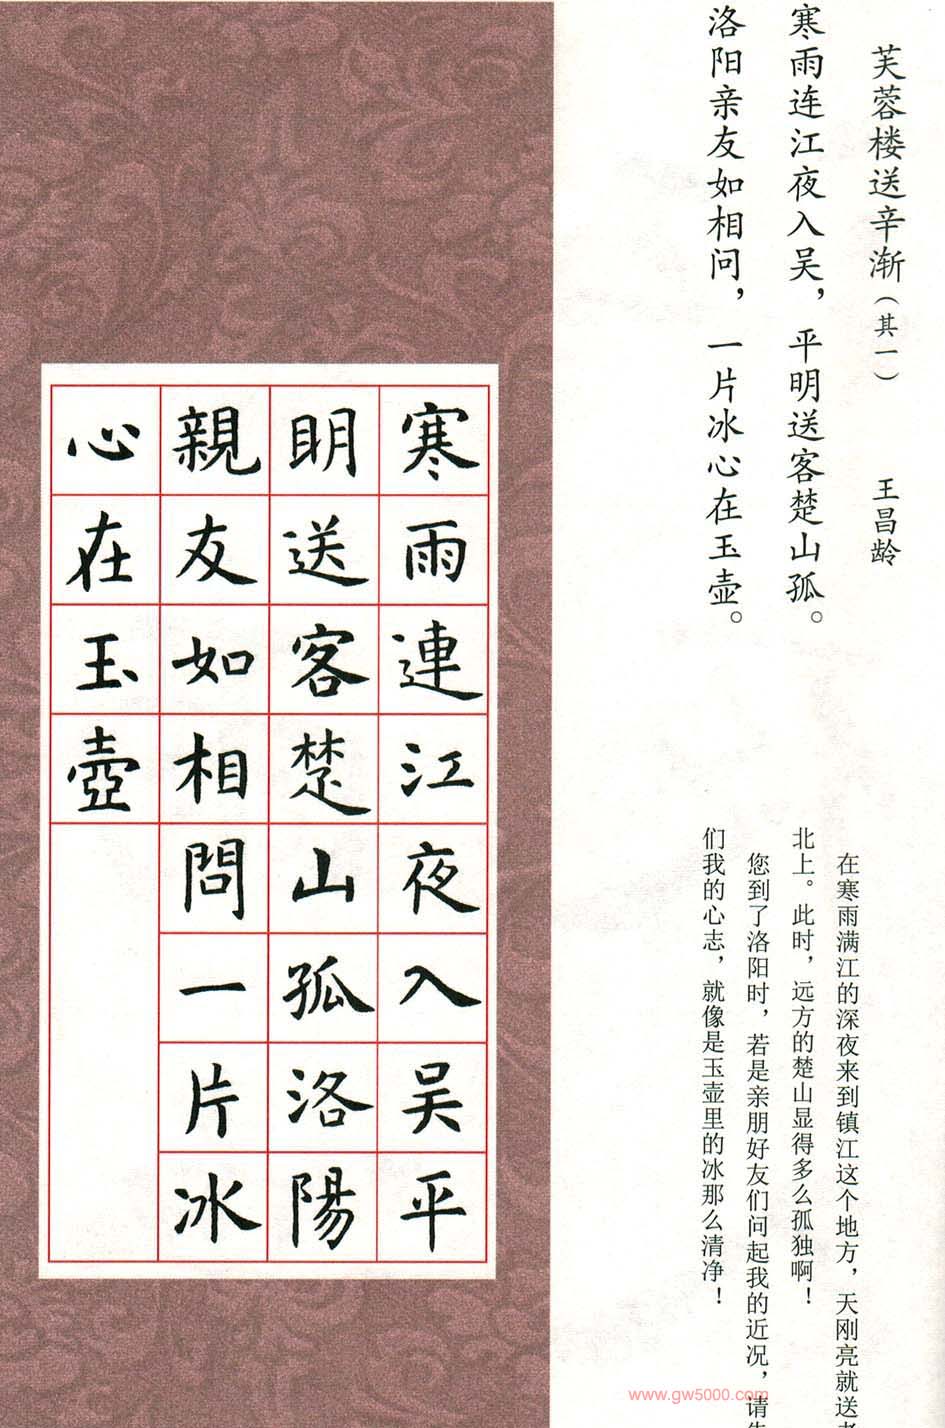 芙蓉楼送辛渐（其一） 王昌龄
寒雨连江夜入吴，平明送客楚山孤。
洛阳亲友如相问，一片冰心在玉壶。
在寒雨满江的深夜来到镇江这个地方，天刚亮就送
北上。此时，远方的楚山显得多么孤独啊！
您到了洛阳时，若是亲朋好友们问起我的近况，请
们我的心志，就像是玉壶里的冰那么清净！
寒雨連江夜入吴平
明送客楚山孤洛陽
親友如相問一片冰
心在玉壺
www.gw5000.com